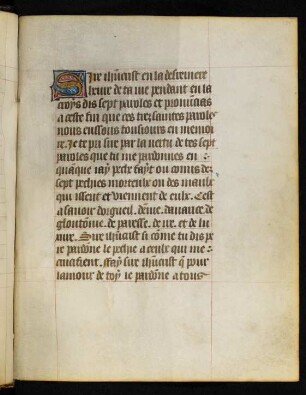 Sire ihūcrist en la desreniere
heure de ta vie pendant en la
croys dis sept paroles et pronuncas
a ceste fin que ces tressaintes paroles
nous eussons tousiours en memoi
re. Je te pri sire par la vertu de tes sept
paroles que tu me pardonnes en
quāque iay pechie fayt ou comis des
sept pechies morteulx ou des maulx
qui issent et viennent de eulx. Cest
a savoir dorgueil. denvie. davarice. de
gloutōnie. de paresse. de ire. et de lu
xure. Sire ihūcrist si cōme tu dis pe
re pardōne le pechie a ceulx qui me
crucifient. Fay sire ihūcrist q̄ pour
lamour de toy ie pardōne a tous